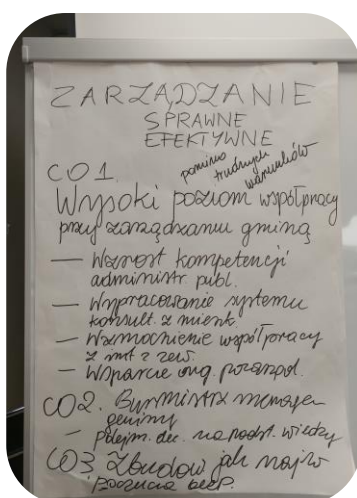 ZARZĄDZANIE
SPRAWNE
EFEKTYWNE
pomimo
trudnych
warunków
CO1
Wysoki poziom współpracy
przy zarządzaniu gminą
— Wzrost kompetencji
administr. publ.
— Wypracowanie systemu
konsult. z mieszk.
— Wzmocnienie współpracy
z zew.
— Wsparcie org. pozarząd.
CO2. Burmistrz menager
gminy
- Podejm. dec. na podst. wiedzy
CO3 Zbudow jak najw
poczucia bezp.